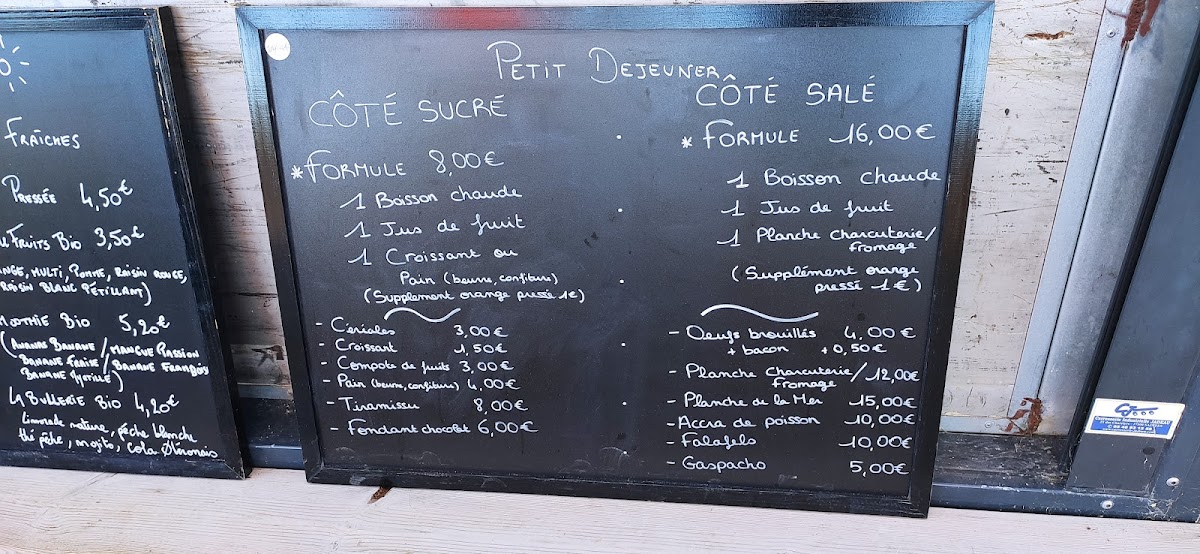 FRAÎCHES
PRESSÉE 4,50€
FRUITS BIO 3,50€
MULTI, POMME, RAISIN ROUGE,
RAISIN BLANC PÉTILLANT)
BIO 5,20€
(ANANAS BANANE / MANGUE PASSION
BANANE FRAISE / BANANE FRAMBOISE
BANANE MYRTILLE)
LA BULLERIE BIO 4,20€
limonade nature, pêche blanche
thé pêche, mojito, Cola
PETIT DEJEUNER
CÔTÉ SUCRÉ
*FORMULE 8,00€
1 Boisson chaude
1 Jus de fruit
1 Croissant ou
Pain (beurre, confiture)
(Supplement orange pressé 1€)
- Céréales 3,00€
- Croissant 1,50€
- Compote de fruits 3,00€
- Pain (beurre, confiture) 4,00€
- Tiramissu 8,00€
- Fondant chocolat 6,00€
CÔTÉ SALÉ
* FORMULE 16,00€
1 Boisson chaude
1 Jus de fruit
1 Planche charcuterie/
fromage
(Supplément orange
pressé 1€)
- Oeufs brouillés 4,00€
+ bacon +0,50€
- Planche charcuterie/ 12,00€
fromage
- Planche de la Mer 15,00€
- Accra de poisson 10,00€
- Falafels 10,00€
- Gaspacho 5,00€